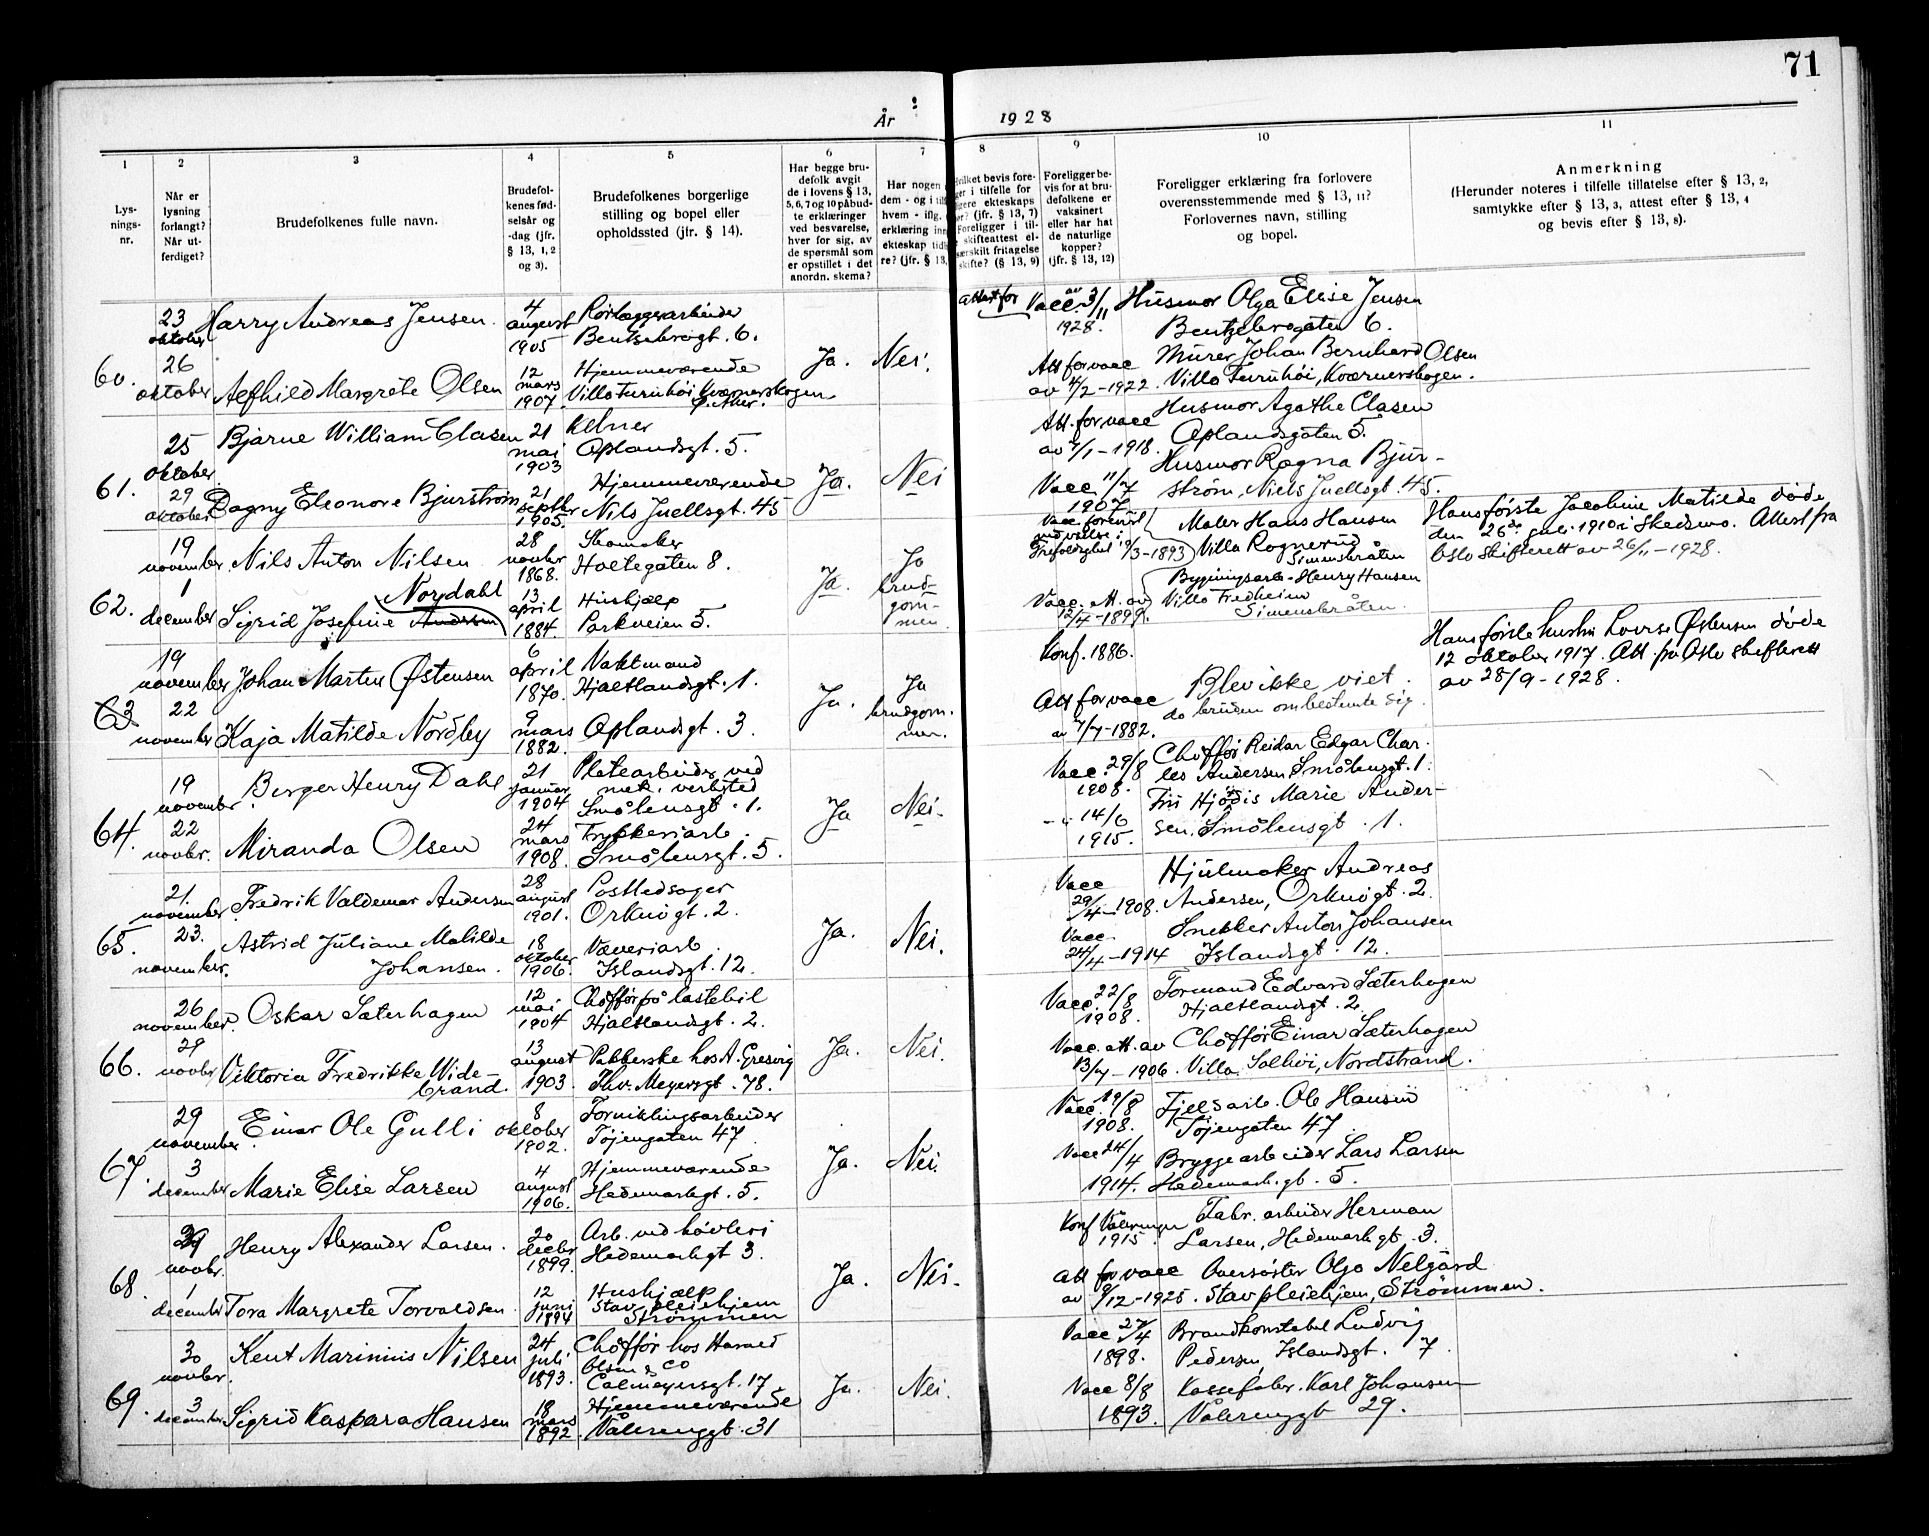 71
År 1928
1
2
3
4
5
6
7
8
9
10
11
Lys-
nings-
nr.
Når er
lysning
forlangt?
Når ut-
ferdiget?
Brudefolkenes fulle navn.
Brudefol-
kenes fød-
selsår og
-dag (jfr.
§ 13, 1, 2
og 3).
Brudefolkenes borgerlige
stilling og bopel eller
opholdssted (jfr. § 14).
Har begge bru-
defolk avgit
de i lovens § 13,
5, 6, 7 og 10 påbud-
te erklæringer
ved besvarelse,
hver for sig, av
de spørsmål som
er opstillet i det
anordn. skema?
Har nogen
dem - og i
hvem - iflg.
erklæring inn
ekteskap tid
re? (jfr. § 13,
Hvilket bevis fore-
ger i tilfelle for
ekteskaps
(jfr. § 13, 7)
Foreligger i til-
skifteattest el-
særskilt fritagelse
skifte? (§ 13, 9)
Foreligger be-
vis for at bru-
defolkene er
vaksinert
eller har hat
de naturlige
kopper?
(jfr. § 13, 12)
Foreligger erklæring fra forlovere
overensstemmende med § 13, 11?
Forlovernes navn, stilling
og bopel.
Anmerkning
(Herunder noteres i tilfelle tillatelse efter § 13, 2,
samtykke efter § 13, 3, attest efter § 13, 4
og bevis efter § 13, 8).
60.
23
oktober
Harry Andreas Jensen
4
august
1905
Rørlæggerarbeider
Bentsebrogt. 6.
Ja. Nei.
Attest for
Vacc. av 3/11
1928.
Husmor Olga Elise Jensen
Bentzebrogaten 6.
26
oktober
Alfhild Margrete Olsen
12
mars
1907.
Hjemmeværende
Villa Furuhøi, Kværnerskogen
Ø. Aker.
Att for vacc
av 4/2-1922.
Murer Johan Bernhard Olsen
Villa Furuhøi, Kværnerskogen.
61.
25
oktober
Bjarne William Clasen
21
mai
1903
Kelner
Oplandsgt. 5.
Ja. Nei
Att. for vacc
av 7/1-1918.
Husmor Agathe Clasen
Oplandsgaten 5.
29
oktober
Dagny Eleonore Bjurstrøm
21
septbr
1905.
Hjemmeværende
Nils Juellsgt. 45
Vacc. 11/7
1907
Husmor Ragna Bjur-
strøm, Niels Juellsgt. 45.
62.
19
november
Nils Anton Nilsen
28
novbr
1868.
Skomaker
Holtegaten 8.
Ja. Ja
brud-
gom-
men
Vacc
19/3-1893
Maler Hans Hansen
Villa Rognerud
Simensbråten
Hans første Jacobine Matilde døde
den 26de juli 1910 i Skedsmo. Attest fra
Oslo skifterett av 26/11-1928.
1
december
Nordahl
Sigrid Josefine Andersen
13
april
1884.
Hushjælp
Parkveien 5.
Vacc. att. av
12/4-1899.
Bygningsarb. Henry Hansen
Villa Fredheim
Simensbråten.
63
19
november
Johan Martin Østensen
6
april
1870.
Vaktmand
Hjaltlandsgt. 1.
Ja. Ja
brudgom-
men.
Konf. 1886.
Blev ikke viet.
da bruden ombestemte sig.
Hans første hustru Lovise Østensen døde
12 oktober 1917. Att. fra Oslo skifterett
av 28/9-1928.
22
november
Kaja Matilde Nordby
9
mars
1882.
Oplandsgt. 3.
Att for vacc
av 7/7-1882.
64.
19
november
Birger Henry Dahl
21
januar
1904
Platearbeider ved
mek. verksted
Smålensgt. 1.
Ja Nei.
Vacc. 29/8
1908.
Chåffør Reidar Edgar Char-
les Andersen Smålensgt. 1.
22
novbr.
Miranda Olsen
24
mars
1908.
Trykkeriarb.
Smålensgt. 5.
- " 14/6
1915.
Fru Hjørdis Marie Ander-
sen, Smålensgt. 1.
65.
21.
november
Fredrik Valdemar Andersen
28
august
1901.
Postledsager
Orknøgt. 2.
Ja. Nei.
Vacc
29/4-1908.
Hjulmaker Andreas
Andersen, Orknøgt. 2.
23.
november.
Astrid Juliane Matilde
Johansen.
18
oktober
1906.
Væveriarb.
Islandsgt. 12.
Vacc.
24/4-1914
Snekker Anton Johansen
Islandsgt. 12.
66.
26
november.
Oskar Sæterhagen
12
mai
1904
Chåffør på lastebil
Hjaltlandsgt. 2.
Ja. Nei.
Vacc. 22/8
1908.
Formand Edvard Sæterhagen
Hjaltlandsgt. 2.
29
novbr
Viktoria Fredrikke Wide-
brand.
13
august
1903.
Pakkerske hos A. Gresvig
Thv. Meyersgt. 78.
Vacc. att. av
13/7-1906.
Chåffør Einar Sæterhagen
Villa Solhøi, Nordstrand.
67.
29
november.
Einar Ole Gulli
8
oktober
1902.
Forniklingsarbeider
Tøjengaten 47.
Ja. Nei.
Vacc. 19/8
1908.
Fjellsarb. Ole Hansen
Tøjengaten 47.
3
december
Marie Elise Larsen
4
august
1906.
Hjemmeværende
Hedemarksgt. 5.
Vacc 24/4
1914.
Bryggearbeider Lars Larsen
Hedemark.gt. 5.
68.
29
novbr.
Henry Alexander Larsen.
20
decbr
1899.
Arb. ved høvleri
Hedemarksgt 3.
Ja. Nei.
Konf Vålerengen
1915.
Fabr. arbeider Herman
Larsen, Hedemarksgt. 3.
1
december
Tora Margrete Torvaldsen.
12
juni
1894
Hushjælp
Stav pleiehjem
Strømmen
Att for vacc
av 9/12-1925.
Oversøster Olga Nelgård
Stav pleiehjem, Strømmen.
69.
30
novbr.
Kent Marinius Nilsen
24
juli
1893.
Chåffør hos Harald
Olsen & Co
Calmeyersgt. 17
Ja. Nei.
Vacc 27/4
1898.
Brandkonstabel Ludvig
Pedersen, Islandsgt. 7.
3
december
Sigrid Kaspara Hansen
18
mars
1892.
Hjemmeværende
Vålerenggt. 31
Vacc 8/8
1893.
Kassefabr. Karl Johansen
Vålerenggt 29.